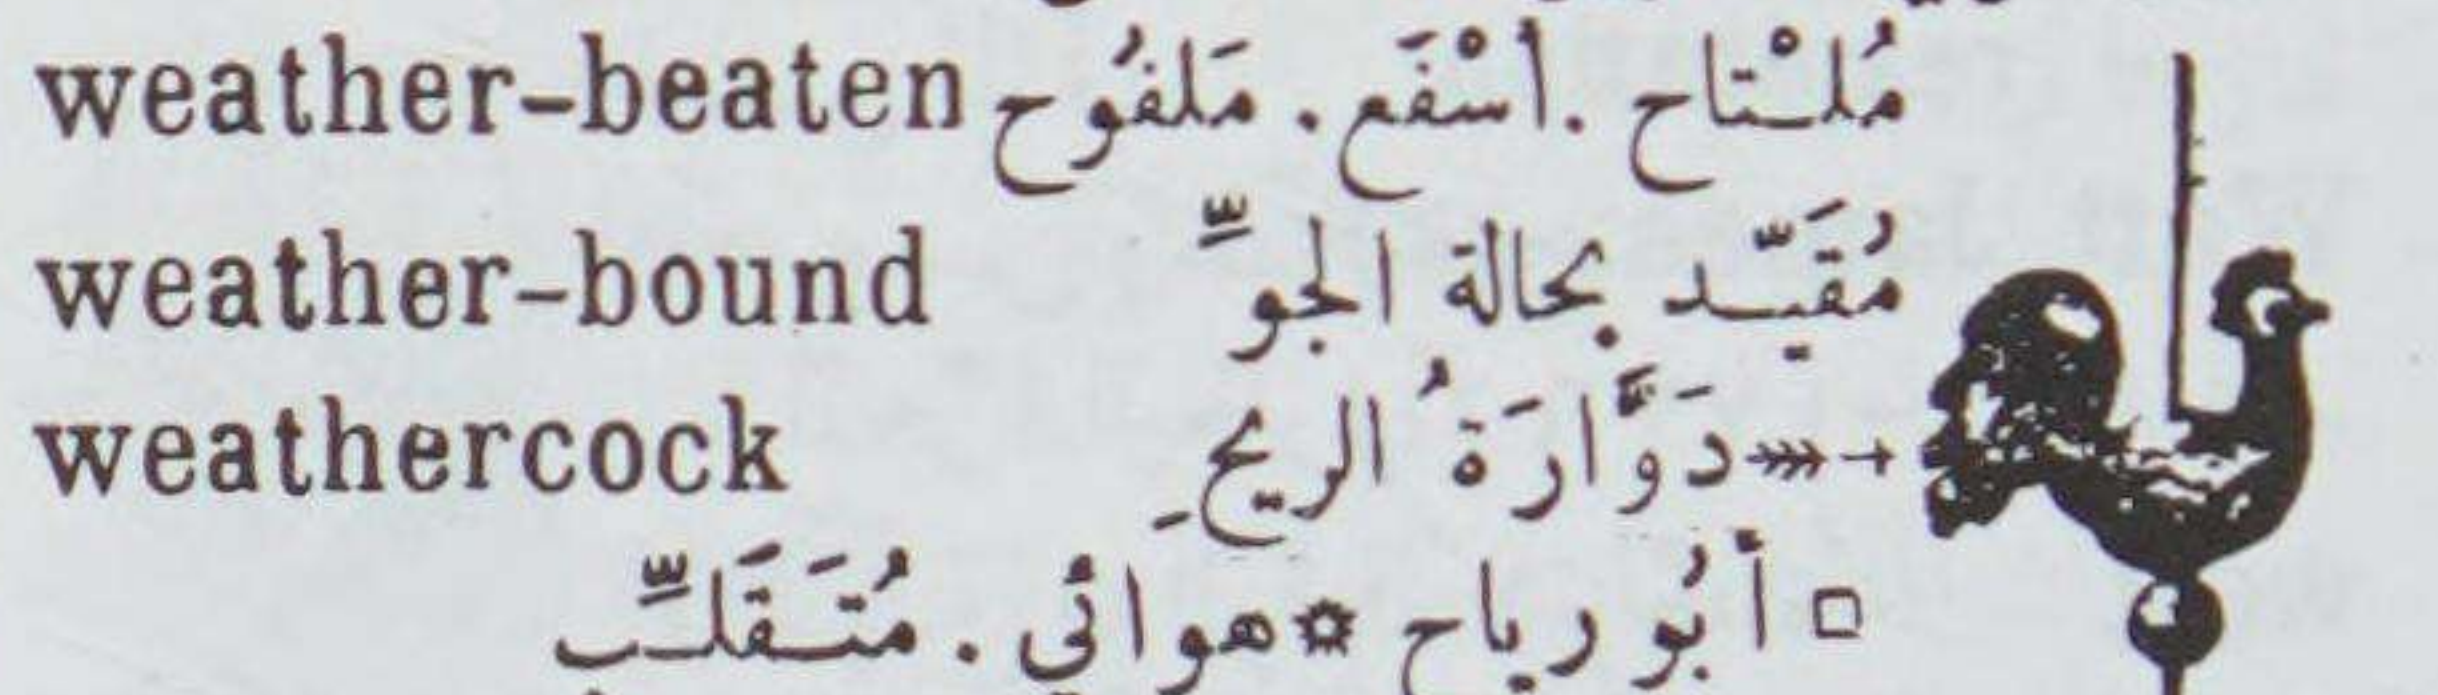 weather-beaten مُلْتاح . أَسْفَع . مَلفُوح
weather-bound مُقَيَّد بحالة الجوِّ
weathercock دَوَّارَةُ الريحِ
□ أبُو رياح ✱ هوائي . مُتَقَلِّب